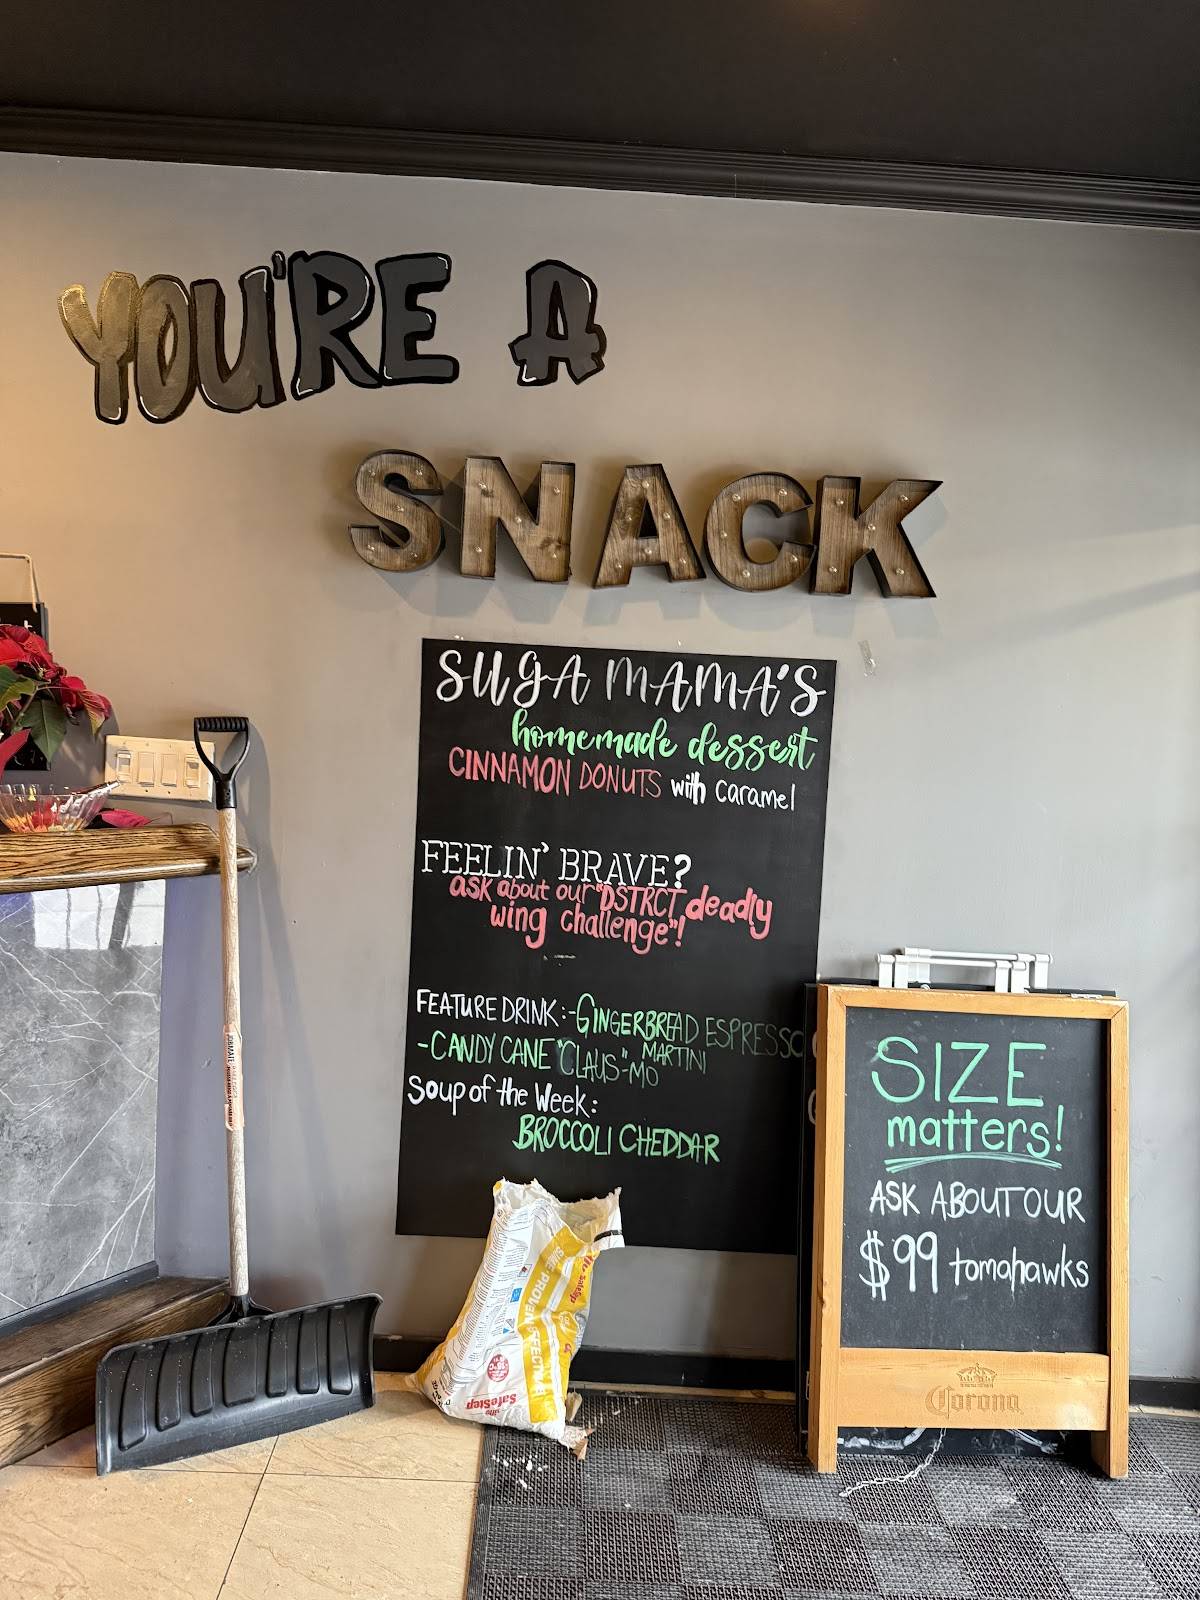 YOU'RE A
SNACK
SUGA MAMA'S
homemade dessert
CINNAMON DONUTS with caramel
FEELIN' BRAVE?
ask about our "DSTRCT deadly
wing challenge"!
FEATURE DRINK:-GINGERBREAD ESPRESSO
MARTINI
-CANDY CANE "CLAUS"-MO
Soup of the Week:
BROCCOLI CHEDDAR
SIZE
matters!
ASK ABOUT OUR
$99 tomahawks
Corona
SafeStep